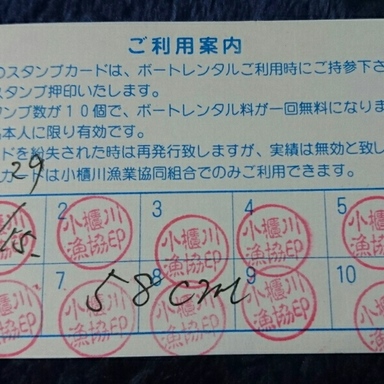 ご利用案内
のスタンプカードは、ボートレンタルご利用時にご持参下さ
スタンプ押印いたします。
タンプ数が10個で、ボートレンタル料が一回無料になりま
本人に限り有効です。
ドを紛失された時は再発行致しますが、実績は無効と致し
カードは小櫃川漁業協同組合でのみご利用できます。
29
2 3 4 5
15-
小櫃川漁協印 小櫃川漁協印 小櫃川漁協印 小櫃川漁協印
7 8 9 10
58cm
小櫃川漁協印 小櫃川漁協印 小櫃川漁協印 小櫃川漁協印